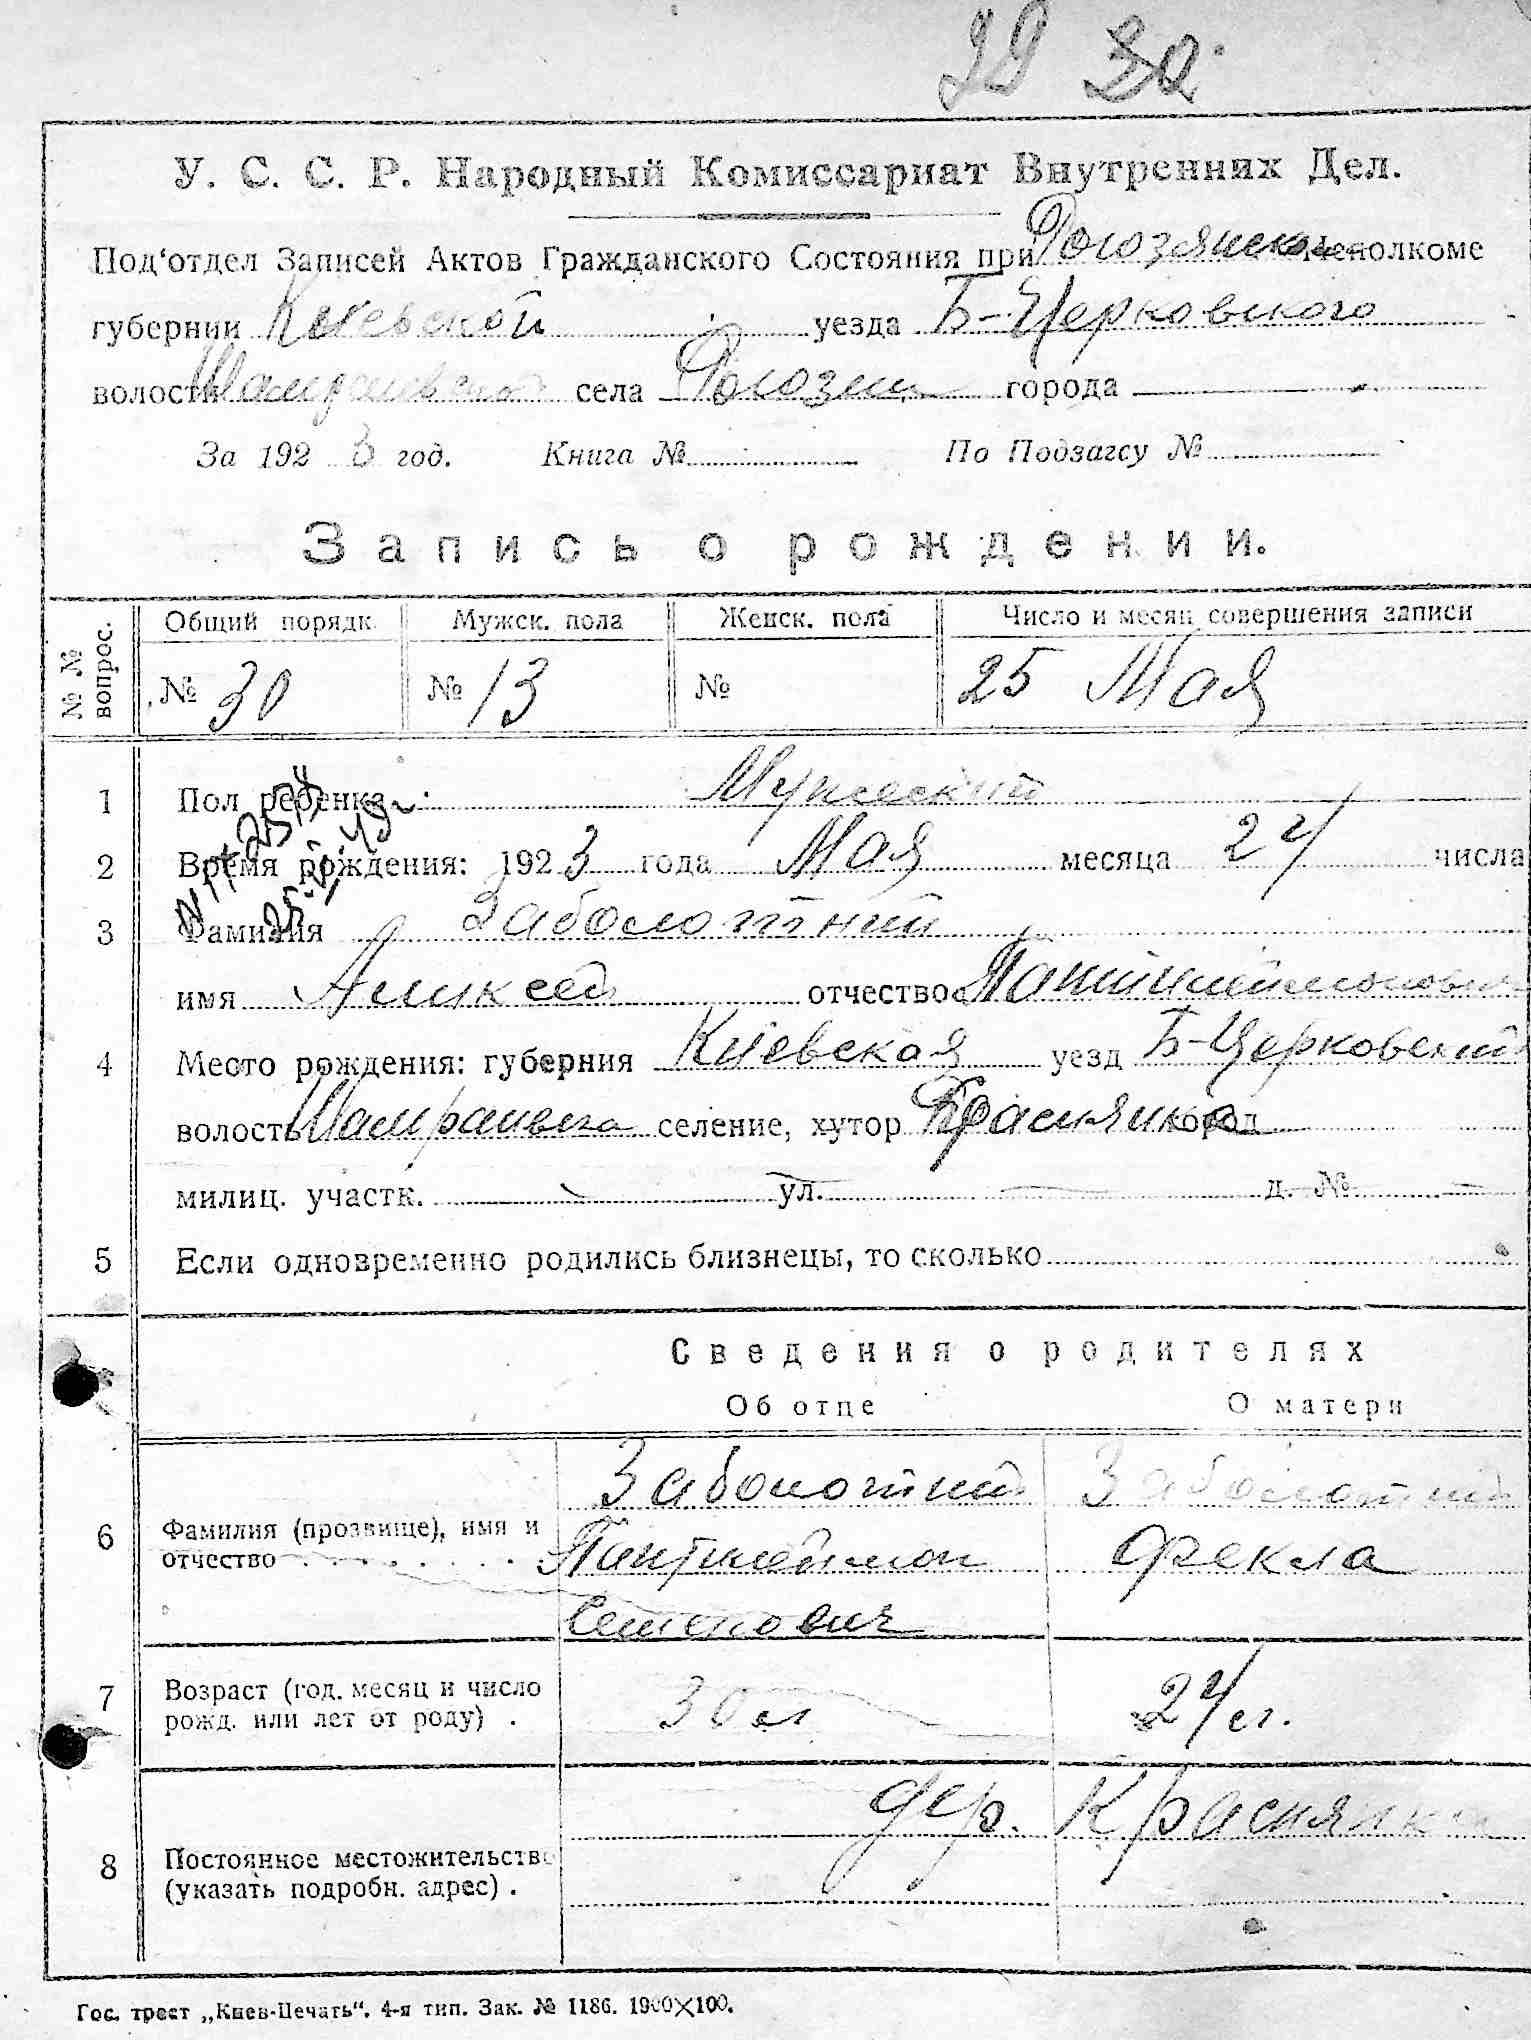 29 30.
У. С. С. Р. Народный Комиссариат Внутренних Дел.
Под‘отдел Записей Актов Гражданского Состояния при Логозянском Исполкоме
губернии Киевской уезда Б-Церковского
волости села города
За 192 3 год. Книга № По Подзагсу №
Запись о рождении.
№ № вопрос.
Общий порядк. Мужск. пола Женск. пола Число и месяц совершения записи
№ 30 № 13 № 25 Мая
1 Пол ребенка Мужеский
2 Время рождения: 1923 года Мая месяца 24 числа
3 Фамилия Заболотний
имя Аликсей отчество
4 Место рождения: губерния Киевская уезд Б-Церковский
волость селение, хутор Краснянка город
милиц. участк. — ул. — д. № —
5 Если одновременно родились близнецы, то сколько
Сведения о родителях
Об отце О матери
Заболотний Заболотний
6 Фамилия (прозвище), имя и
отчество Пантилеймон Фекла
Семенович
7 Возраст (год. месяц и число
рожд. или лет от роду) . 30 л 24 г.
дер. Краснянка
8 Постоянное местожительство
(указать подробн. адрес) .
Гос. трест „Киев-Печать“. 4-я тип. Зак. № 1186. 1900×100.